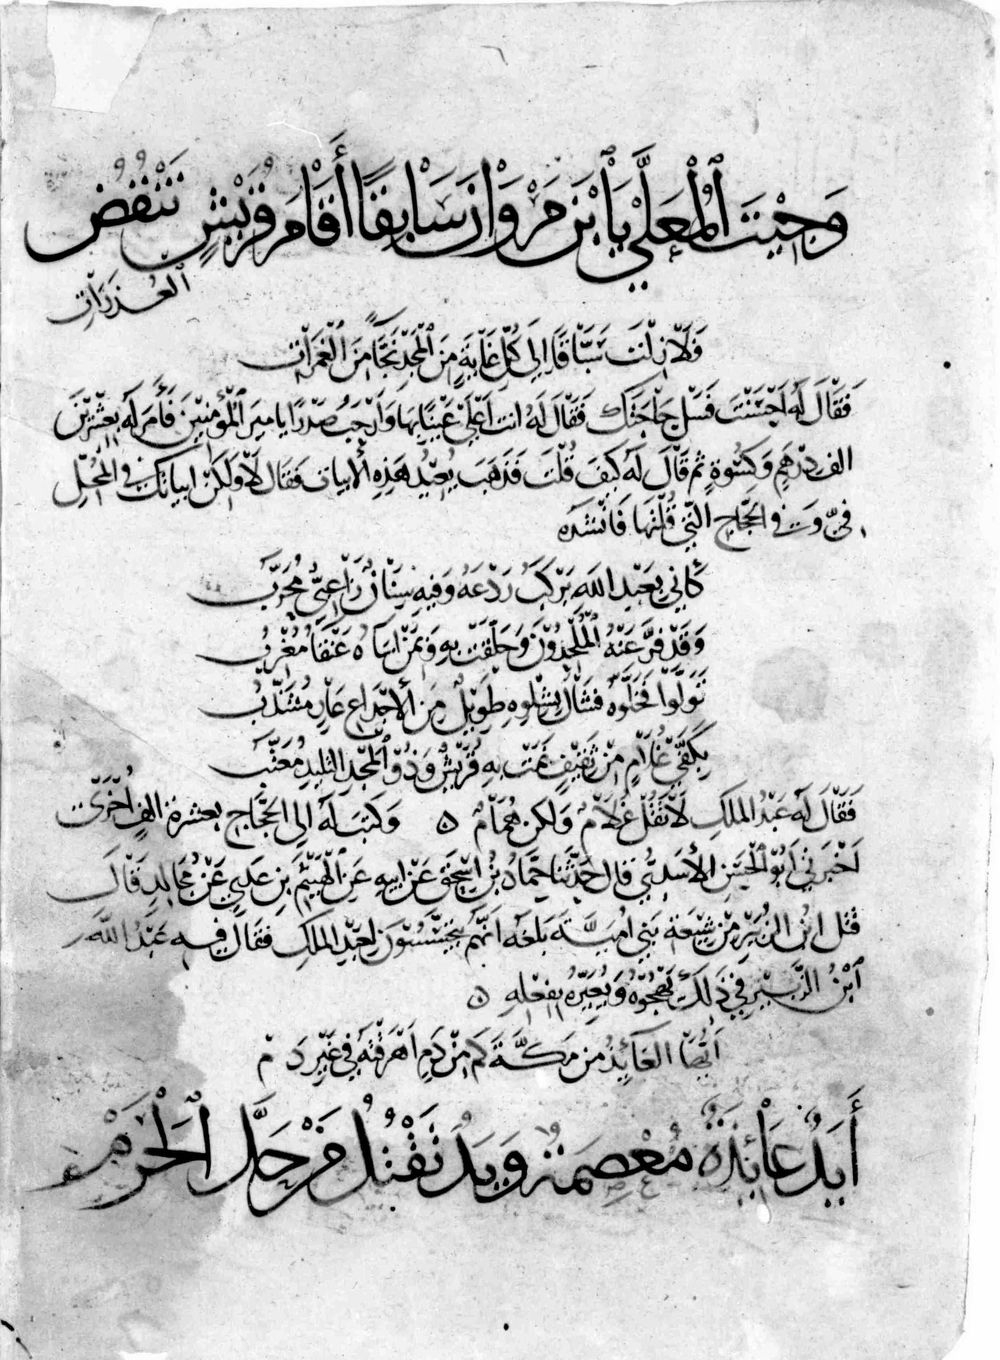 وَجِئْتَ الْمُعَلَّى يَا ابْنَ مَرْوَانَ سَابِقًا أَمَامَ قُرَيْشٍ تَنْفُضُ
العُذَرَاتِ
فَلَا زِلْتَ سَبَّاقًا إِلَى كُلِّ غَايَةٍ مِنَ الْمَجْدِ نَجَّاءً مِنَ الْغَمَرَاتِ
فَقَالَ لَهُ أَحْسَنْتَ فَسَلْ حَاجَتَكَ فَقَالَ لَهُ أنت أَعْلَى عَيْنًا بِهَا وَأَرْحَبُ صَدْرًا يا أميرَ الْمُؤْمِنِينَ فَأَمَرَ لَهُ بِعِشْرِينَ
الف دِرْهَمٍ وَكُسْوَةٍ ثُمَّ قَالَ لَهُ كَيْفَ قُلْتَ فَذَهَبَ يُعِيدُ هَذِهِ الْأَبيات فَقَالَ لَا وَلَكِنْ ابياتك في الْمُحِلِّ
فِيَّ وَفِي الْحَجَّاجِ الَّتِي قُلْتَهَا فَأَنْشَدَهُ
كَأَنِّي بِعَبْدِ اللَّهِ يَرْكَبُ رَدْعَهُ وَفِيهِ سِنَانٌ زَاعِبِيٌّ مُحَرَّبُ
وَقَدْ فَرَّ عَنْهُ الْمُلْحِدُونَ وَحَلَّقَتْ بِهِ وَبِمَنْ آسَاهُ عَنْقَاءُ مُغْرِبُ
تَوَلَّوْا فَخَلَّوْهُ فَشَالَ بِشِلْوِهِ طَوِيلٌ مِنَ الْأَجْذَاعِ عَارٍ مُشَذَّبُ
بِكَفَّيْ غُلَامٍ مِنْ ثَقِيفٍ نَمَتْ بِهِ قُرَيْشٌ وَذُو الْمَجْدِ التَّلِيدِ مُعَتِّبُ
فَقَالَ لَهُ عَبْدُ الْمَلِكِ لَا تَقُلْ غُلَامٌ وَلكِن هُمَامٌ ٥ وَكَتَبَ لَهُ إِلَى الْحَجَّاجِ بعشرة الفٍ أُخْرَى
أَخْبَرَنِي أَبُو الْحَسَنِ الْأَسَدِيُّ قال حَدَّثَنَا حَمَّادُ بْنُ إِسْحَقَ عَنْ أَبِيهِ عَنِ الْهَيْثَمِ بْنِ عَدِيٍّ عَنْ مُجَالِدٍ قَالَ
قَتَلَ ابْنُ الزُّبَيْرِ مِنْ شِيعَةِ بَنِي أُمَيَّةَ بَلَغَهُ أَنَّهُمْ يَتَجَسَّسُونَ لِعَبْدِ الْمَلِكِ فَقَالَ فِيهِ عَبْدُ اللَّهِ
ابْنُ الزَّبِيرِ فِي ذَلِكَ يَهْجُوهُ وَيُعَيِّرُهُ بِفِعْلِهِ ٥
أَيُّهَا الْعَائِذُ مِنْ مَكَّةَ كَمْ مِنْ دَمٍ أَهْرَقْتَهُ فِي غَيْرِ دَمْ
أَيَدٌ عَائِذَةٌ مُعْصِمَةٌ وَيَدٌ تَقْتُلُ مَنْ حَلَّ الْحَرَمْ